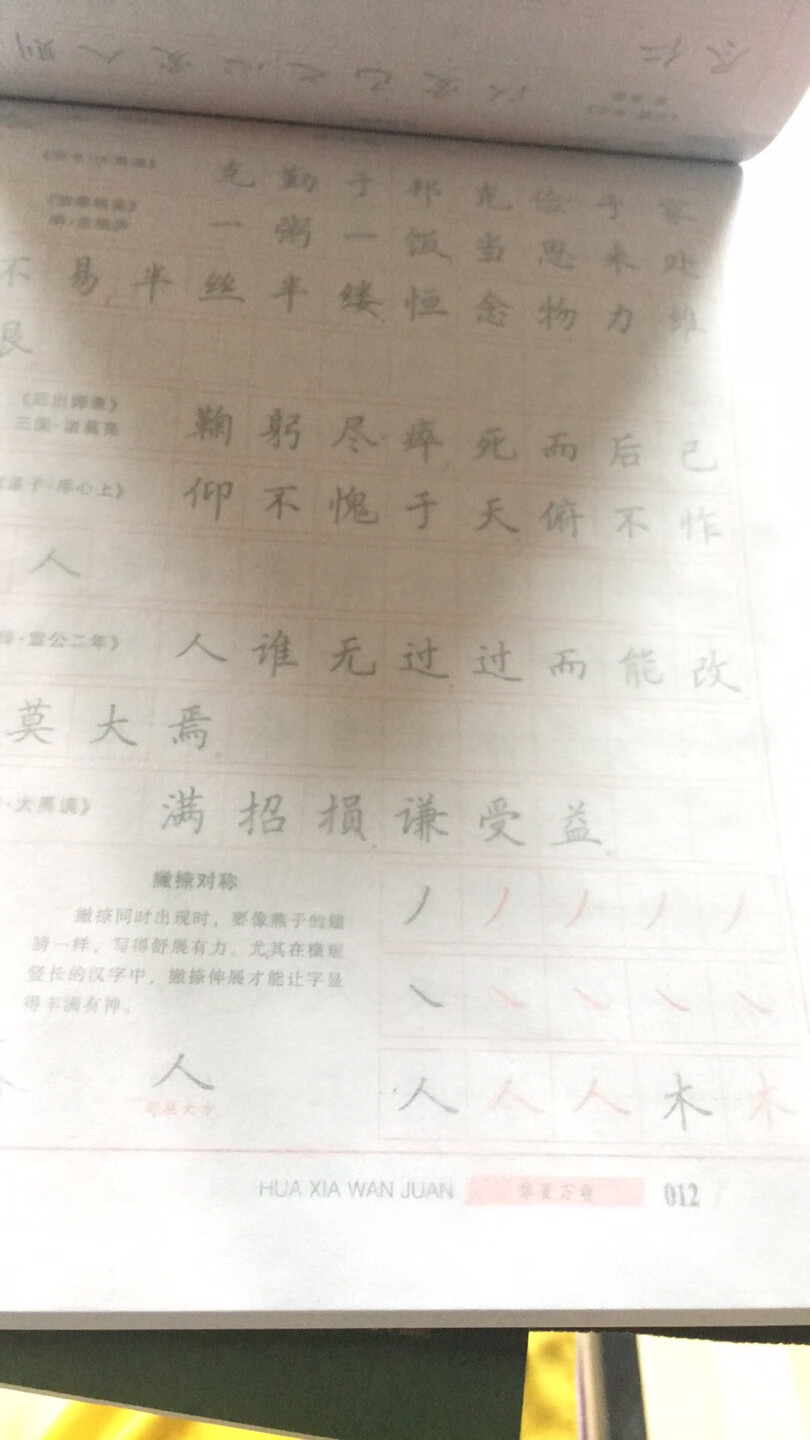 以爱己之心爱人则 尽仁
克勤于邦克俭于家
一粥一饭当思来处
不易半丝半缕恒念物力维
艰
《后出师表》
三国·诸葛亮
鞠躬尽瘁死而后已
孟子·尽心上》
仰不愧于天俯不怍
人
传·宣公二年》
人谁无过过而能改
莫大焉。
·大禹谟》
满招损谦受益
撇捺对称
撇捺同时出现时，要像燕子的翅
膀一样，写得舒展有力。尤其在横短
竖长的汉字中，撇捺伸展才能让字显
得丰满有神。
人
人 人 人 木 木
HUA XIA WAN JUAN 华夏万卷 012